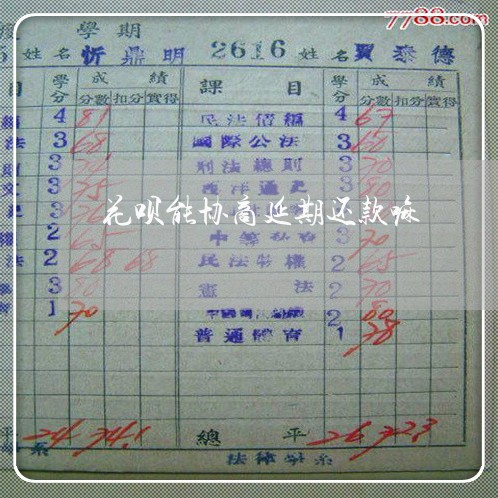 7788.com
學期
姓名 忻鼎明 2616 姓名 賈泰德
目 學分 成績 課目 學分 成績
分數 扣分 實得 分數 扣分 實得
4 81 民法債編 4 67
法 3 68 國際公法 3 60
3 刑法總則 3 70
文 3 75 西洋通史 3 80
3
花呗能协商延期还款嘛
權 2 65 3 70
法 2 68 68 民法物權 2 65
3 80 憲法 2 70
1 70 2 80
普通體育 1 78
平 24 74.1 總平 26 72.3
系 法律學系